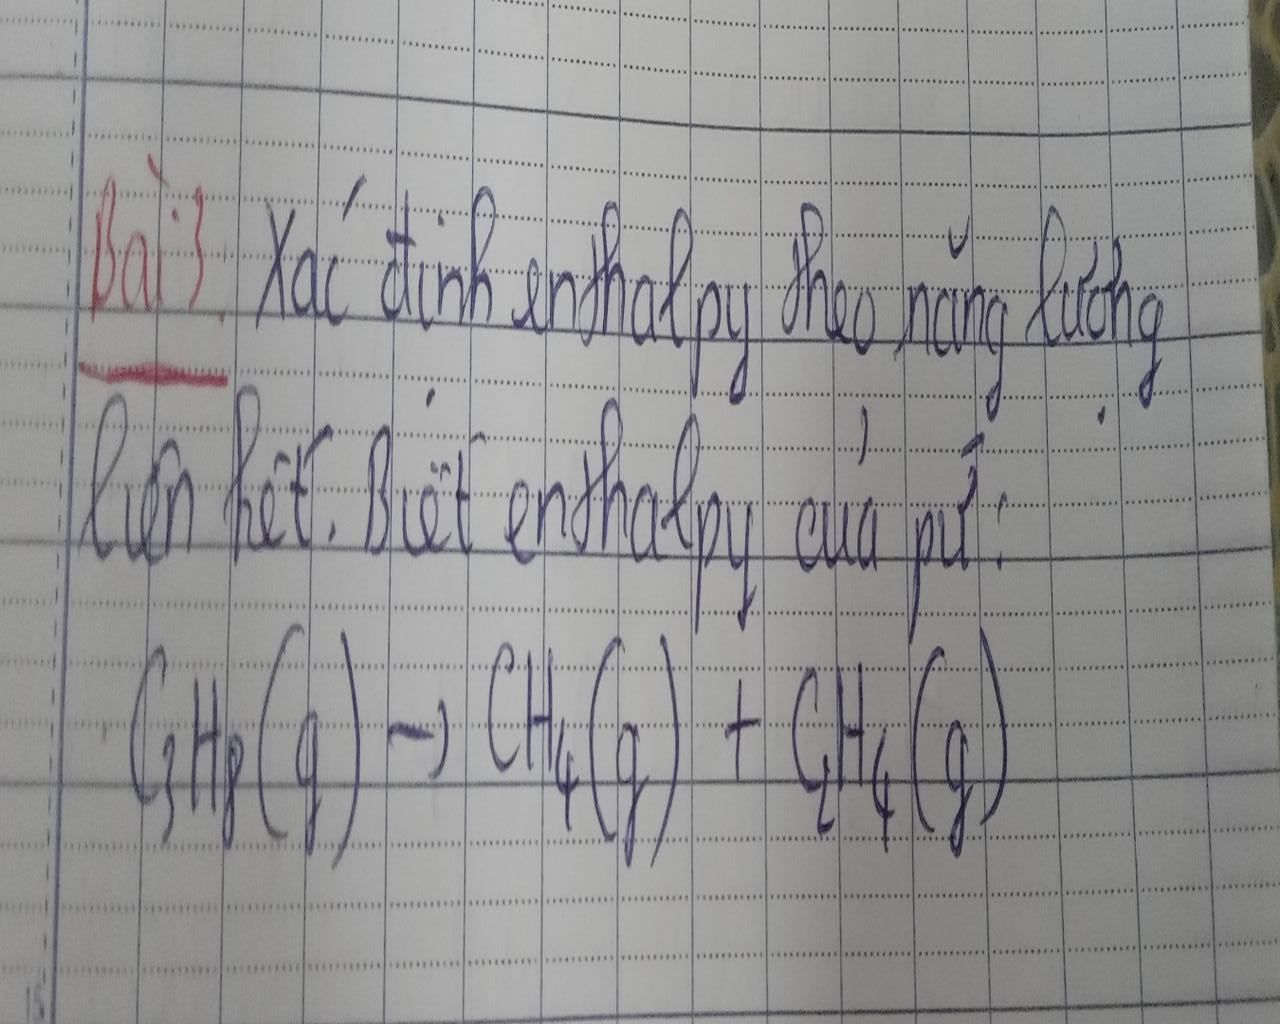 Bài 3. Xác định enthalpy theo năng lượng
liên kết. Biết enthalpy của pứ:
C₃H₈(g) → CH₄(g) + C₂H₄(g)